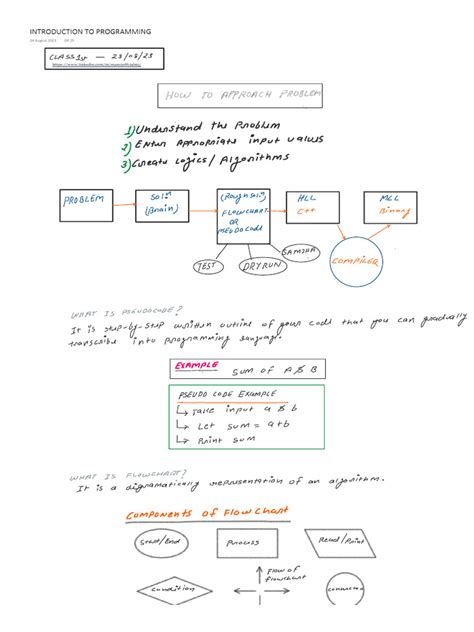 INTRODUCTION TO PROGRAMMING
24 August 2023
CLASS 1st — 23/08/23
HOW TO APPROACH PROBLEM
1) Understand the Problem
2) Enter Appropriate input values
3) Create Logics / Algorithms
PROBLEM
Sol:n
(Brain)
(Rough Sol:n)
FLOWCHART
OR
HLL
C++
MLL
Binary
TEST
DRYRUN
SAMJHA
COMPILER
WHAT IS PSEUDOCODE?
It is step-by-step written outline of your code that you can gradually
transcribe into programming language.
EXAMPLE SUM OF A & B
PSEUDO CODE EXAMPLE
↳ Take input a & b
↳ Let sum = a+b
↳ Print sum
WHAT IS FLOWCHART?
It is a digramatically representation of an algorithm.
COMPONENTS OF FLOW CHART
Start/End
Process
Read/Print
Condition
Flow of
flowchart
connected